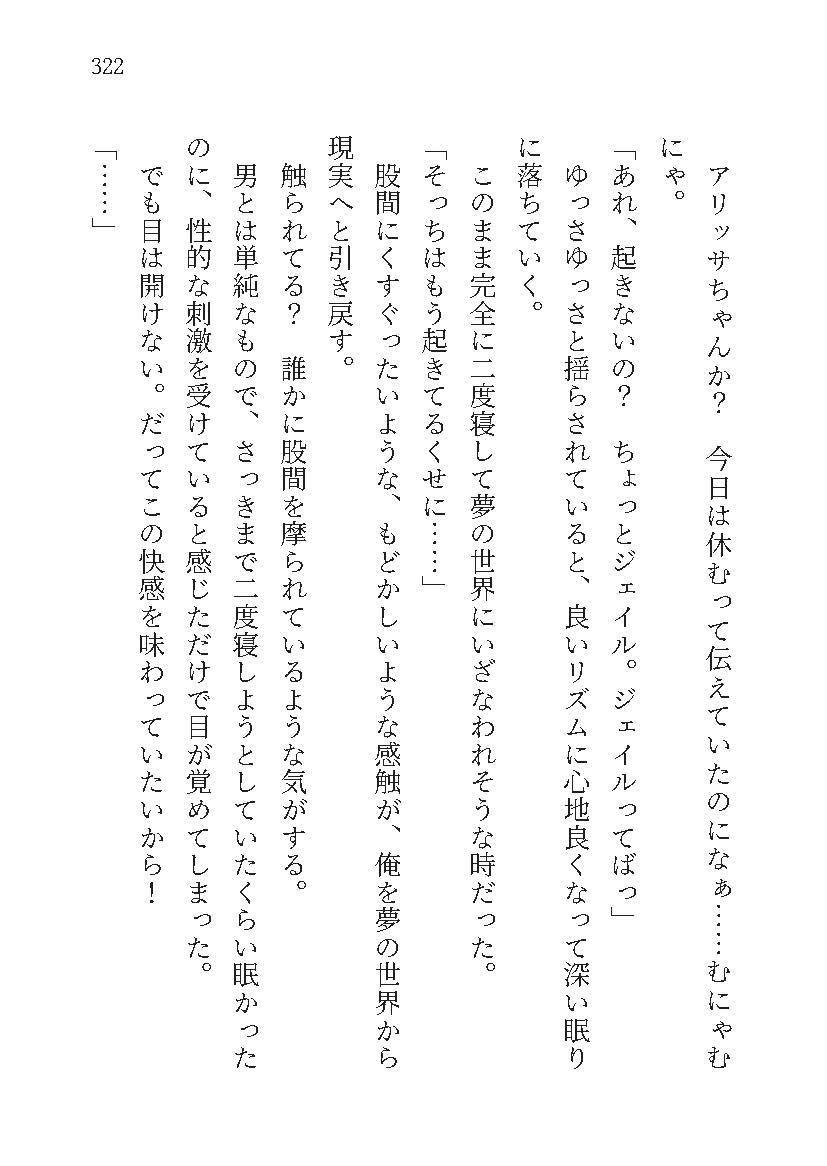 322
　アリッサちゃんか？　今日は休むって伝えていたのになぁ……むにゃむ
にゃ。
「あれ、起きないの？　ちょっとジェイル。ジェイルってばっ」
　ゆっさゆっさと揺らされていると、良いリズムに心地良くなって深い眠り
に落ちていく。
　このまま完全に二度寝して夢の世界にいざなわれそうな時だった。
「そっちはもう起きてるくせに……」
　股間にくすぐったいような、もどかしいような感触が、俺を夢の世界から
現実へと引き戻す。
　触られてる？　誰かに股間を摩られているような気がする。
　男とは単純なもので、さっきまで二度寝しようとしていたくらい眠かった
のに、性的な刺激を受けていると感じただけで目が覚めてしまった。
　でも目は開けない。だってこの快感を味わっていたいから！
「……」